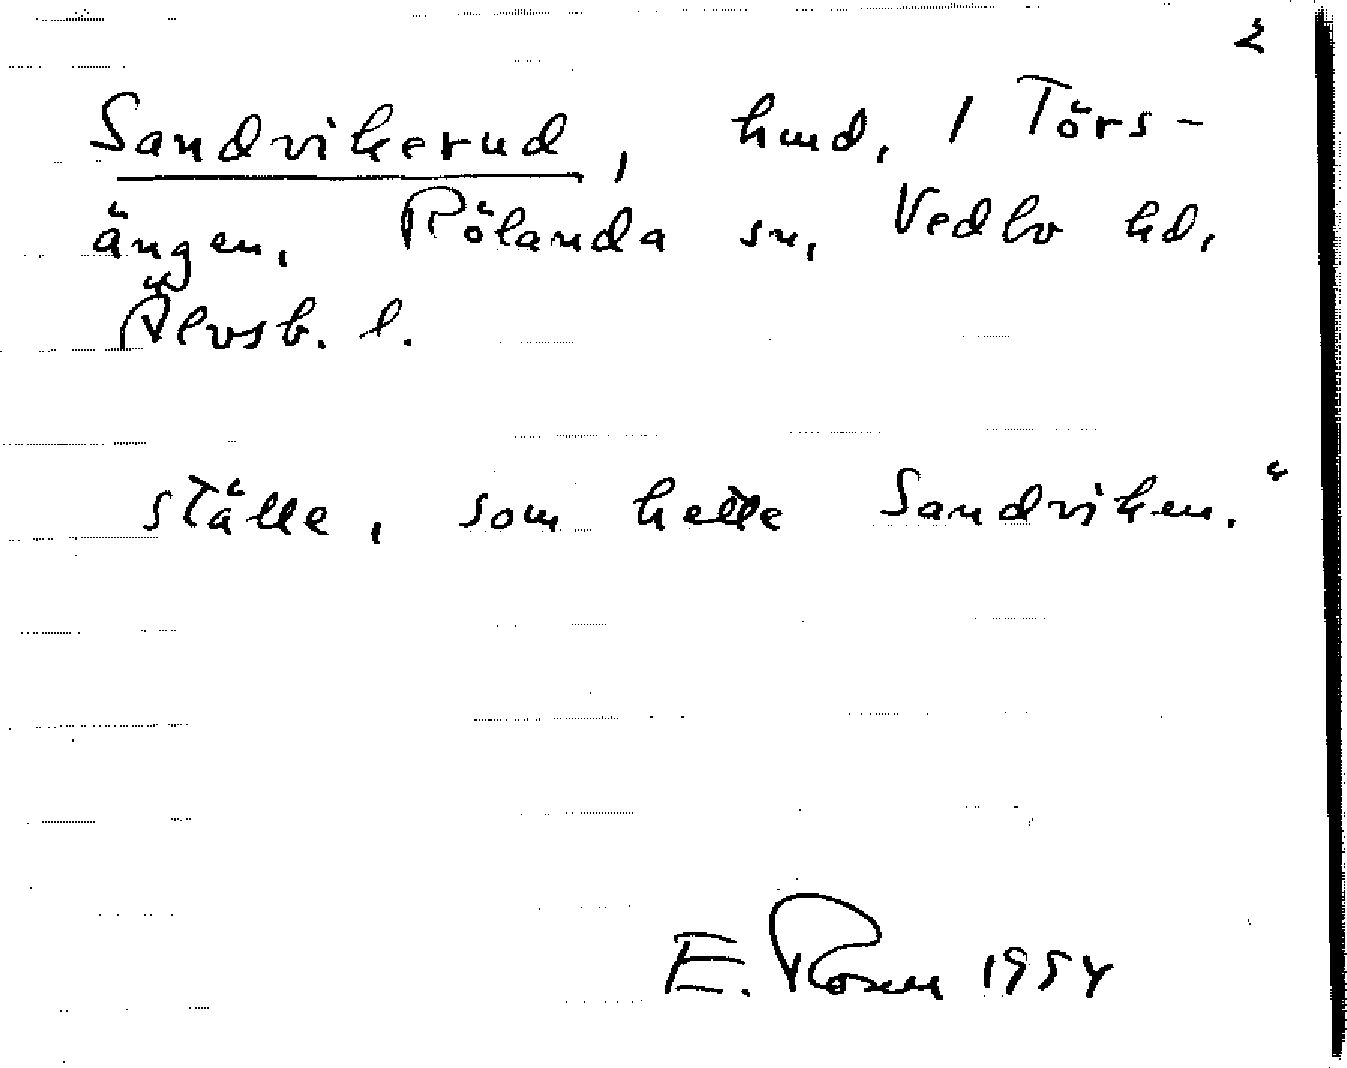 2
Sandvikerud, hmd, 1 Törs-
ängen, Rölanda sn, Vedbo hd,
Älvsb. l.
ställe, som hette Sandviken."
E. Rosen 1954